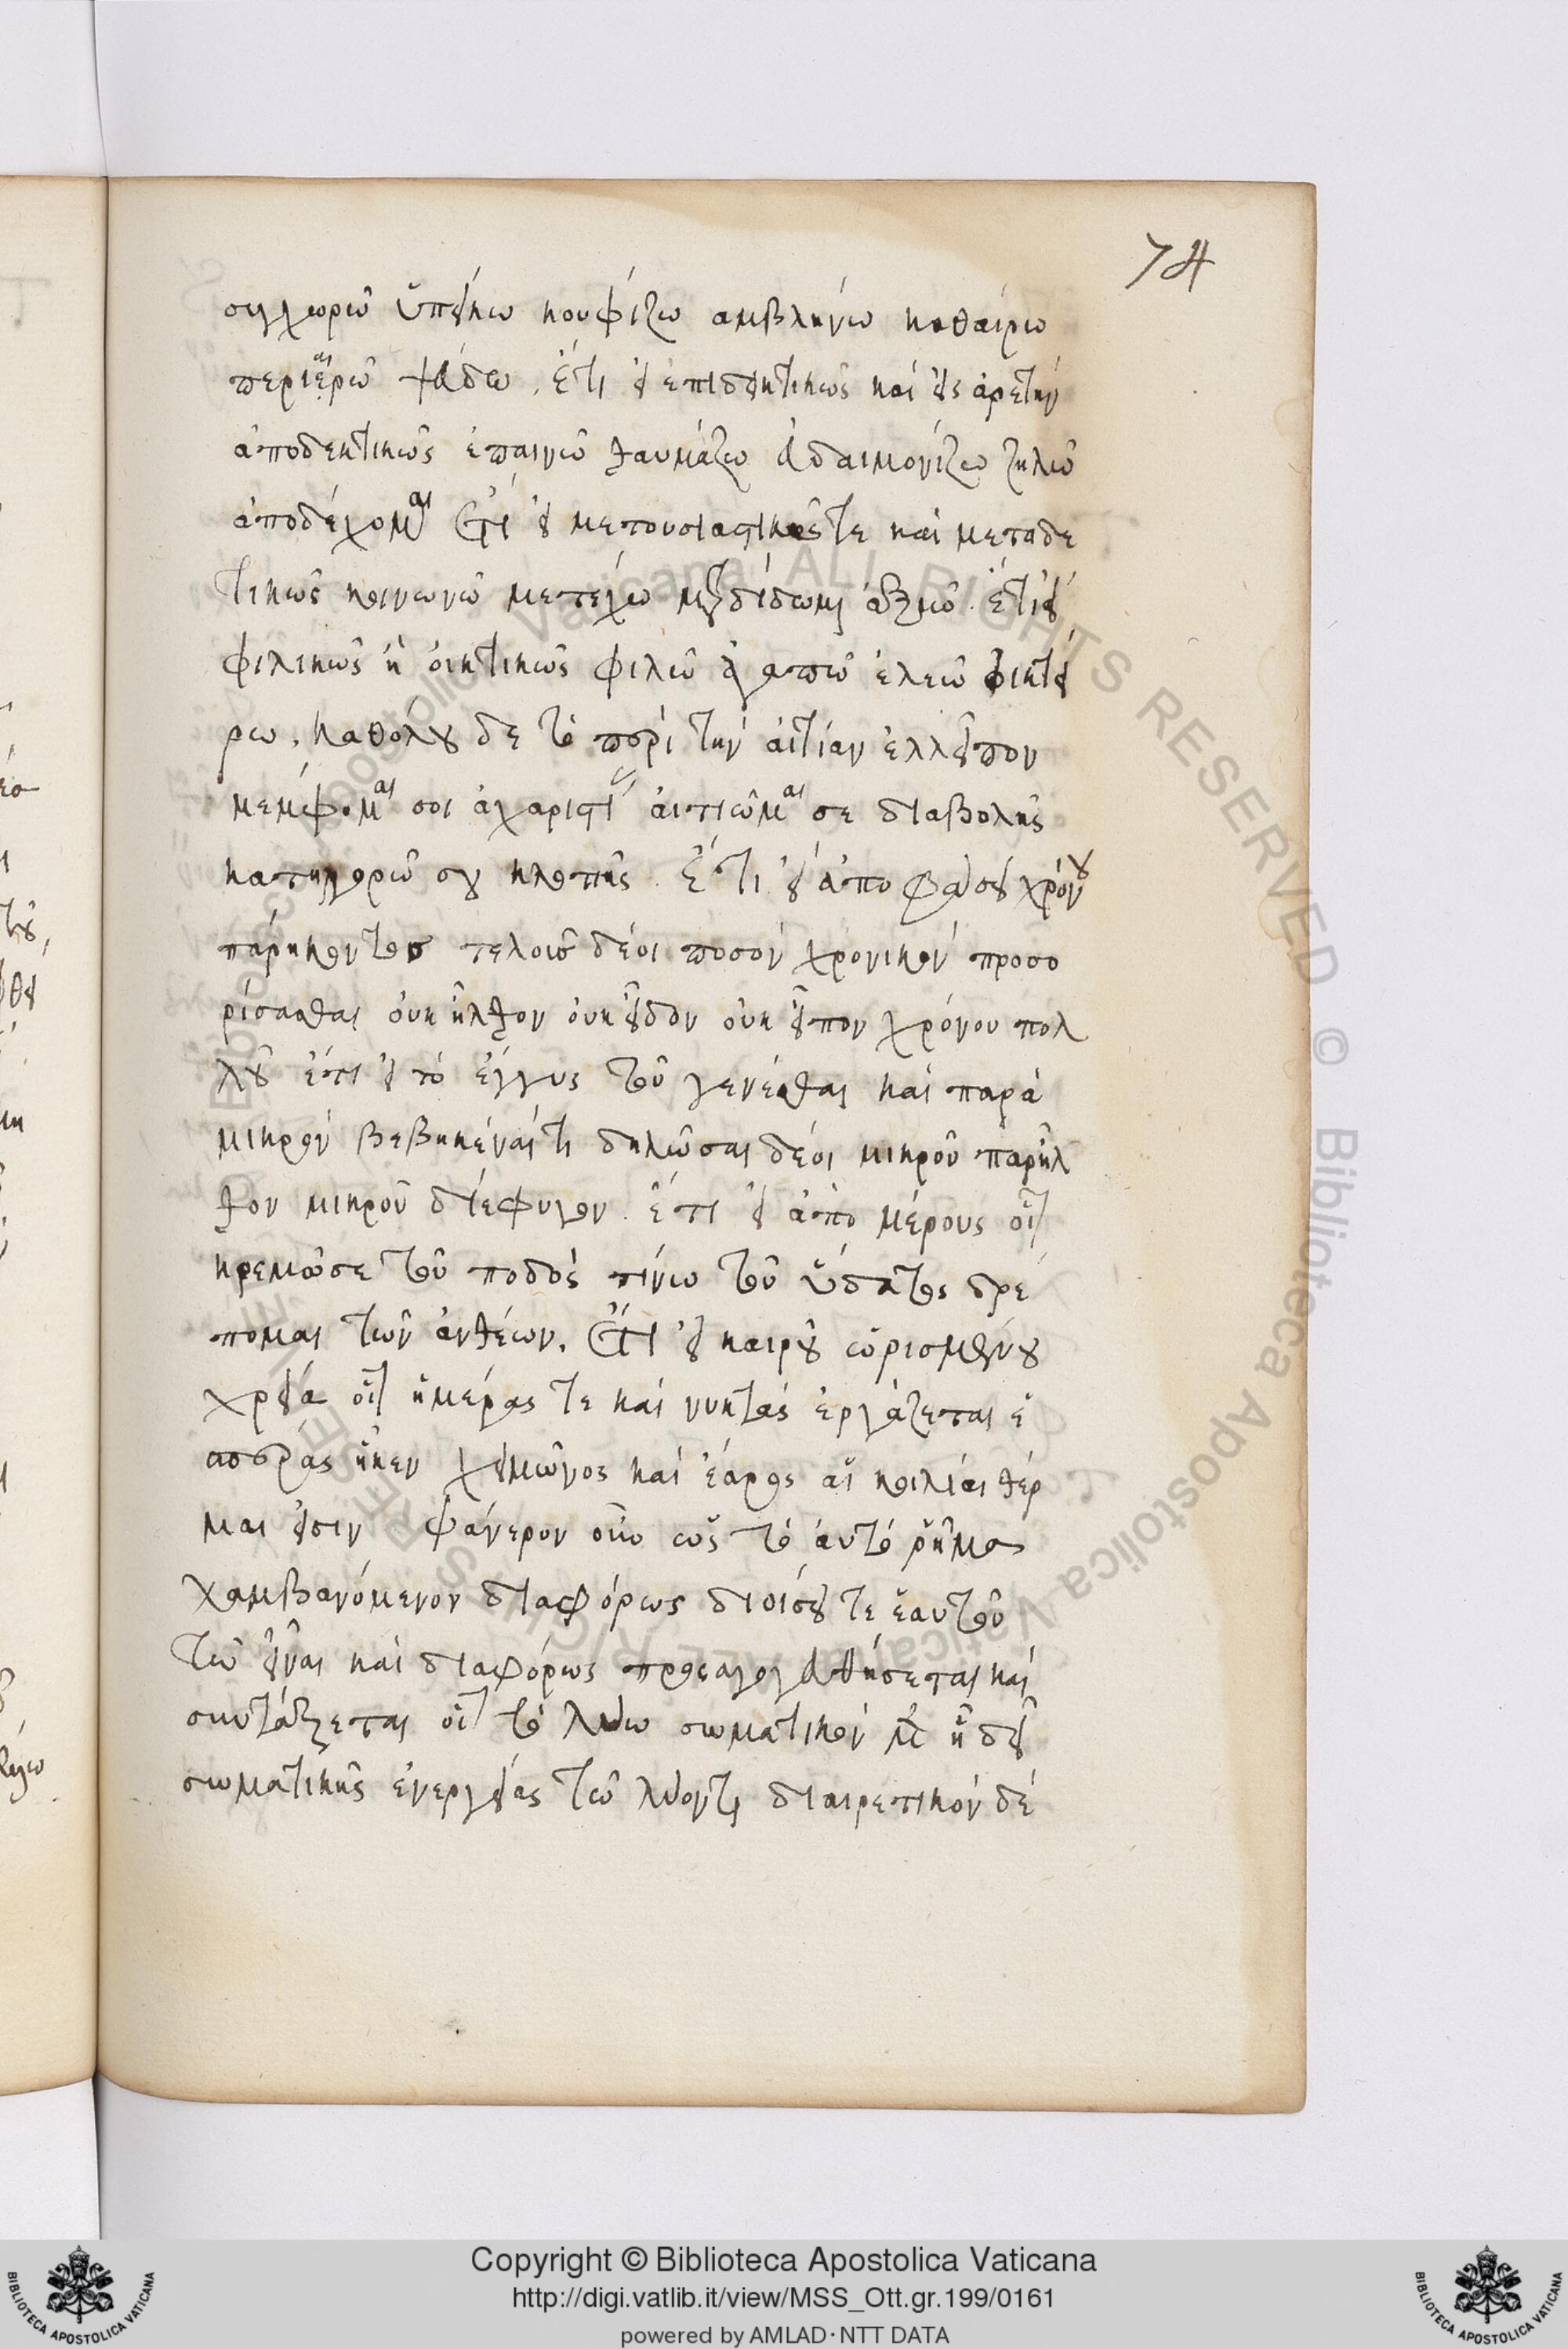 74
συγχωρῶ ὑπείκω κουφίζω αμβλήνω καθαίρω
περιαιρῶ ψεύδω. ἔτι εἰ ἐπιδεικτικῶς καὶ εἰς ἀρετὴν
ἀποδεκτικῶς ἐπαινῶ θαυμάζω εὐδαιμονίζω ζηλῶ
ἀποδέχομαι ἔτι εἰ μετουσιαστικῶς τε καὶ μεταδε
τικῶς κοινωνῶ μετέχω μεταδίδωμι ἀξιῶ. ἔτι εἰ
φιλικῶς ἢ οἰκτικῶς φιλῶ ἀγαπῶ ἐλεῶ οἰκτεί
ρω. καθόλου δε τὸ περὶ τὴν αἰτίαν ἐλλεῖπον
μέμφομαι σοι ἀχαριστίας αἰτιῶμαι σε διαβολῆς
κατηγορῶ σου κλοπῆς. ἔτι εἰ ἀπο φάσει χρόνου
παρήκοντος τελοις δέοι ποσὸν χρονικὸν προσο
ρίσασθαι οὐκ ἦλθον οὐκ εἶδον οὐκ εἶπον χρόνου πολ
λοῦ ἔτι εἰ τὸ ἐγγυς τοῦ γενέσθαι καὶ παρὰ
μικρὸν βεβηκέναί τι δηλῶσαι δέοι μικροῦ παρῆλ
θον μικροῦ διέφυγον. ἔτι εἰ ἀπὸ μέρους οἷον
κρεμῶσε τοῦ ποδὸς πίνω τοῦ ὕδατος δρέ
πομαι τῶν ἀνθέων. ἔτι εἰ καιροῦ ὡρισμένου
χρεία οἷον ἡμέρας τε καὶ νυκτὸς ἐργάζεται ἑ
σπέρας ἧκεν χειμῶνος καὶ ἔαρος αἱ κοιλίαι θερ
μαι εἰσιν φάνερον οὖν ὡς τὸ αὐτὸ ῥῆμα
λαμβανόμενον διαφόρως διοίσει τε ἑαυτοῦ
τῶ εἶναι καὶ διαφόρως προσαγορευθήσεται καὶ
συντάξεται οἷον τὸ λύω σωματικὸν μὲν ἢ δεῖ
σωματικῆς ἐνεργείας τῶ λύοντι διαιρετικὸν δέ
Copyright © Biblioteca Apostolica Vaticana
http://digi.vatlib.it/view/MSS_Ott.gr.199/0161
powered by AMLAD·NTT DATA